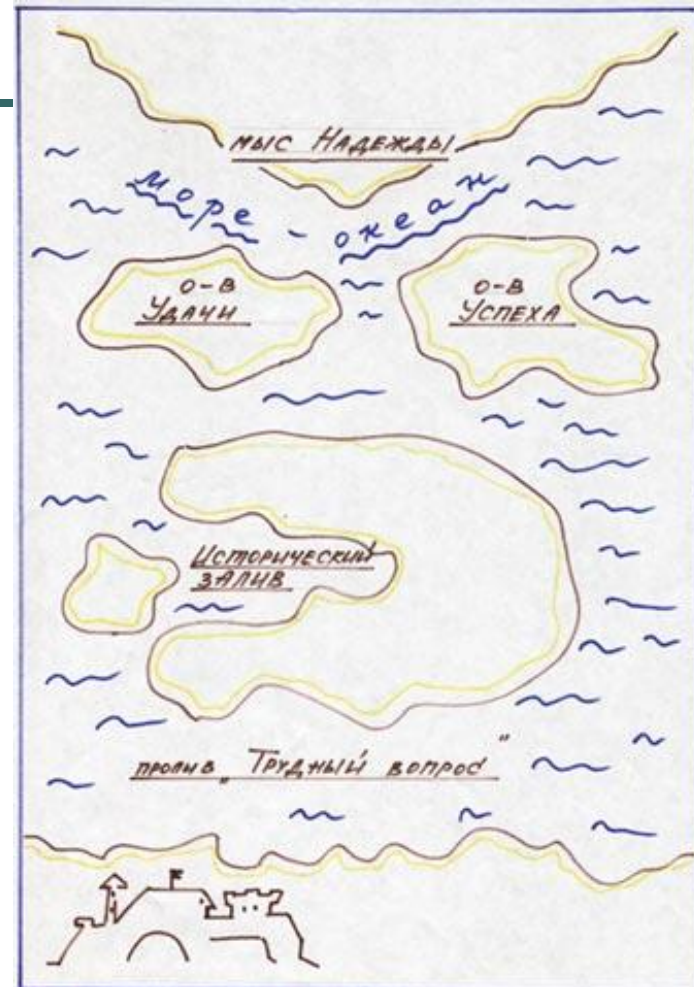 мыс Надежды
море - океан
о-в
Удачи
о-в
Успеха
Исторический
залив
пролив „Трудный вопрос"